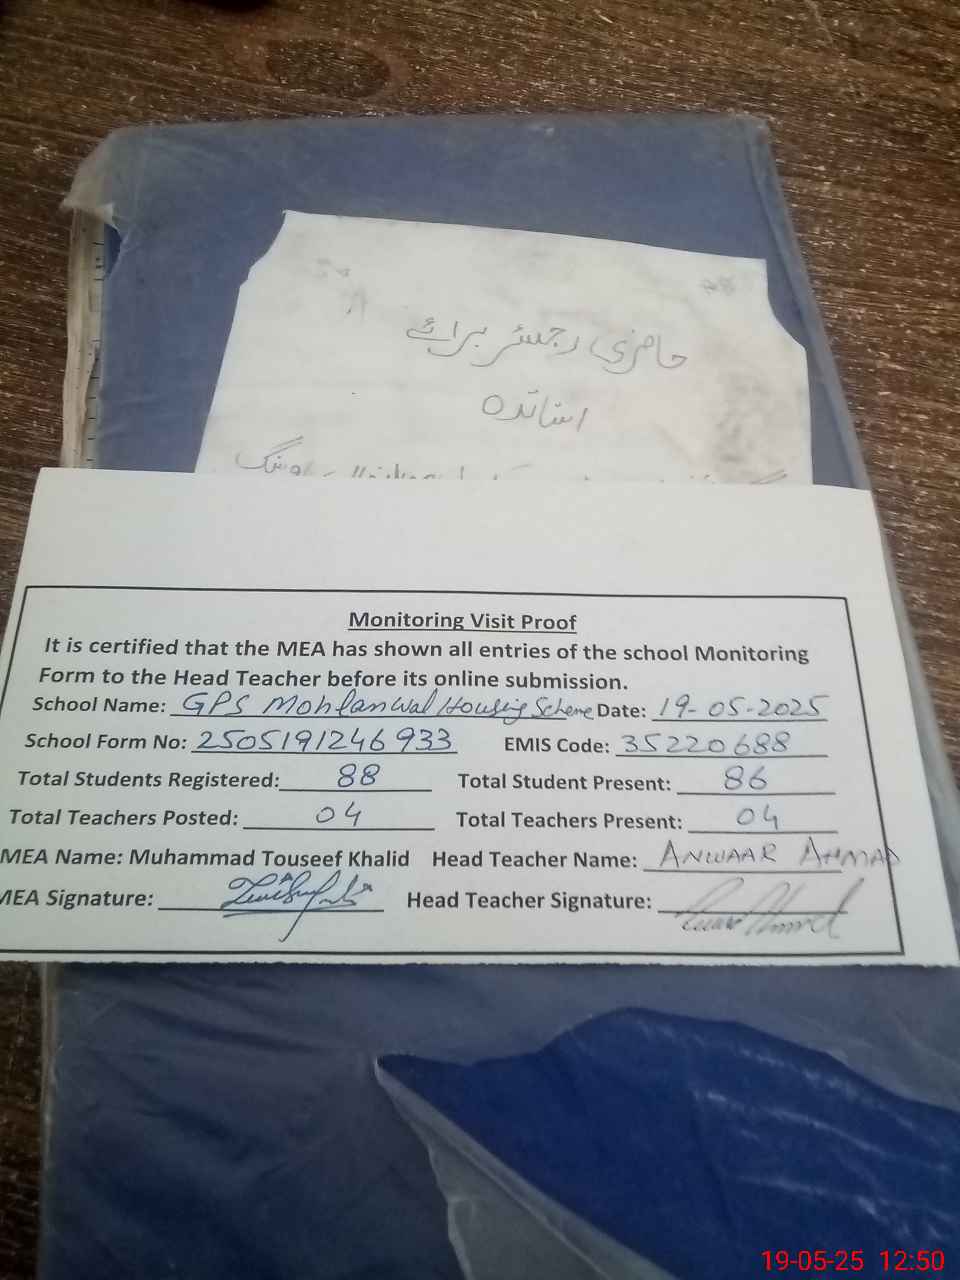 حاضری رجسٹر برائے
اساتذہ
Monitoring Visit Proof
It is certified that the MEA has shown all entries of the school Monitoring
Form to the Head Teacher before its online submission.
School Name: GPS Mohlanwal Housing Scheme Date: 19-05-2025
School Form No: 2505191246933 EMIS Code: 35220688
Total Students Registered: 88 Total Student Present: 86
Total Teachers Posted: 04 Total Teachers Present: 04
MEA Name: Muhammad Touseef Khalid Head Teacher Name: ANWAAR AHMAD
MEA Signature: Head Teacher Signature:
19-05-25 12:50